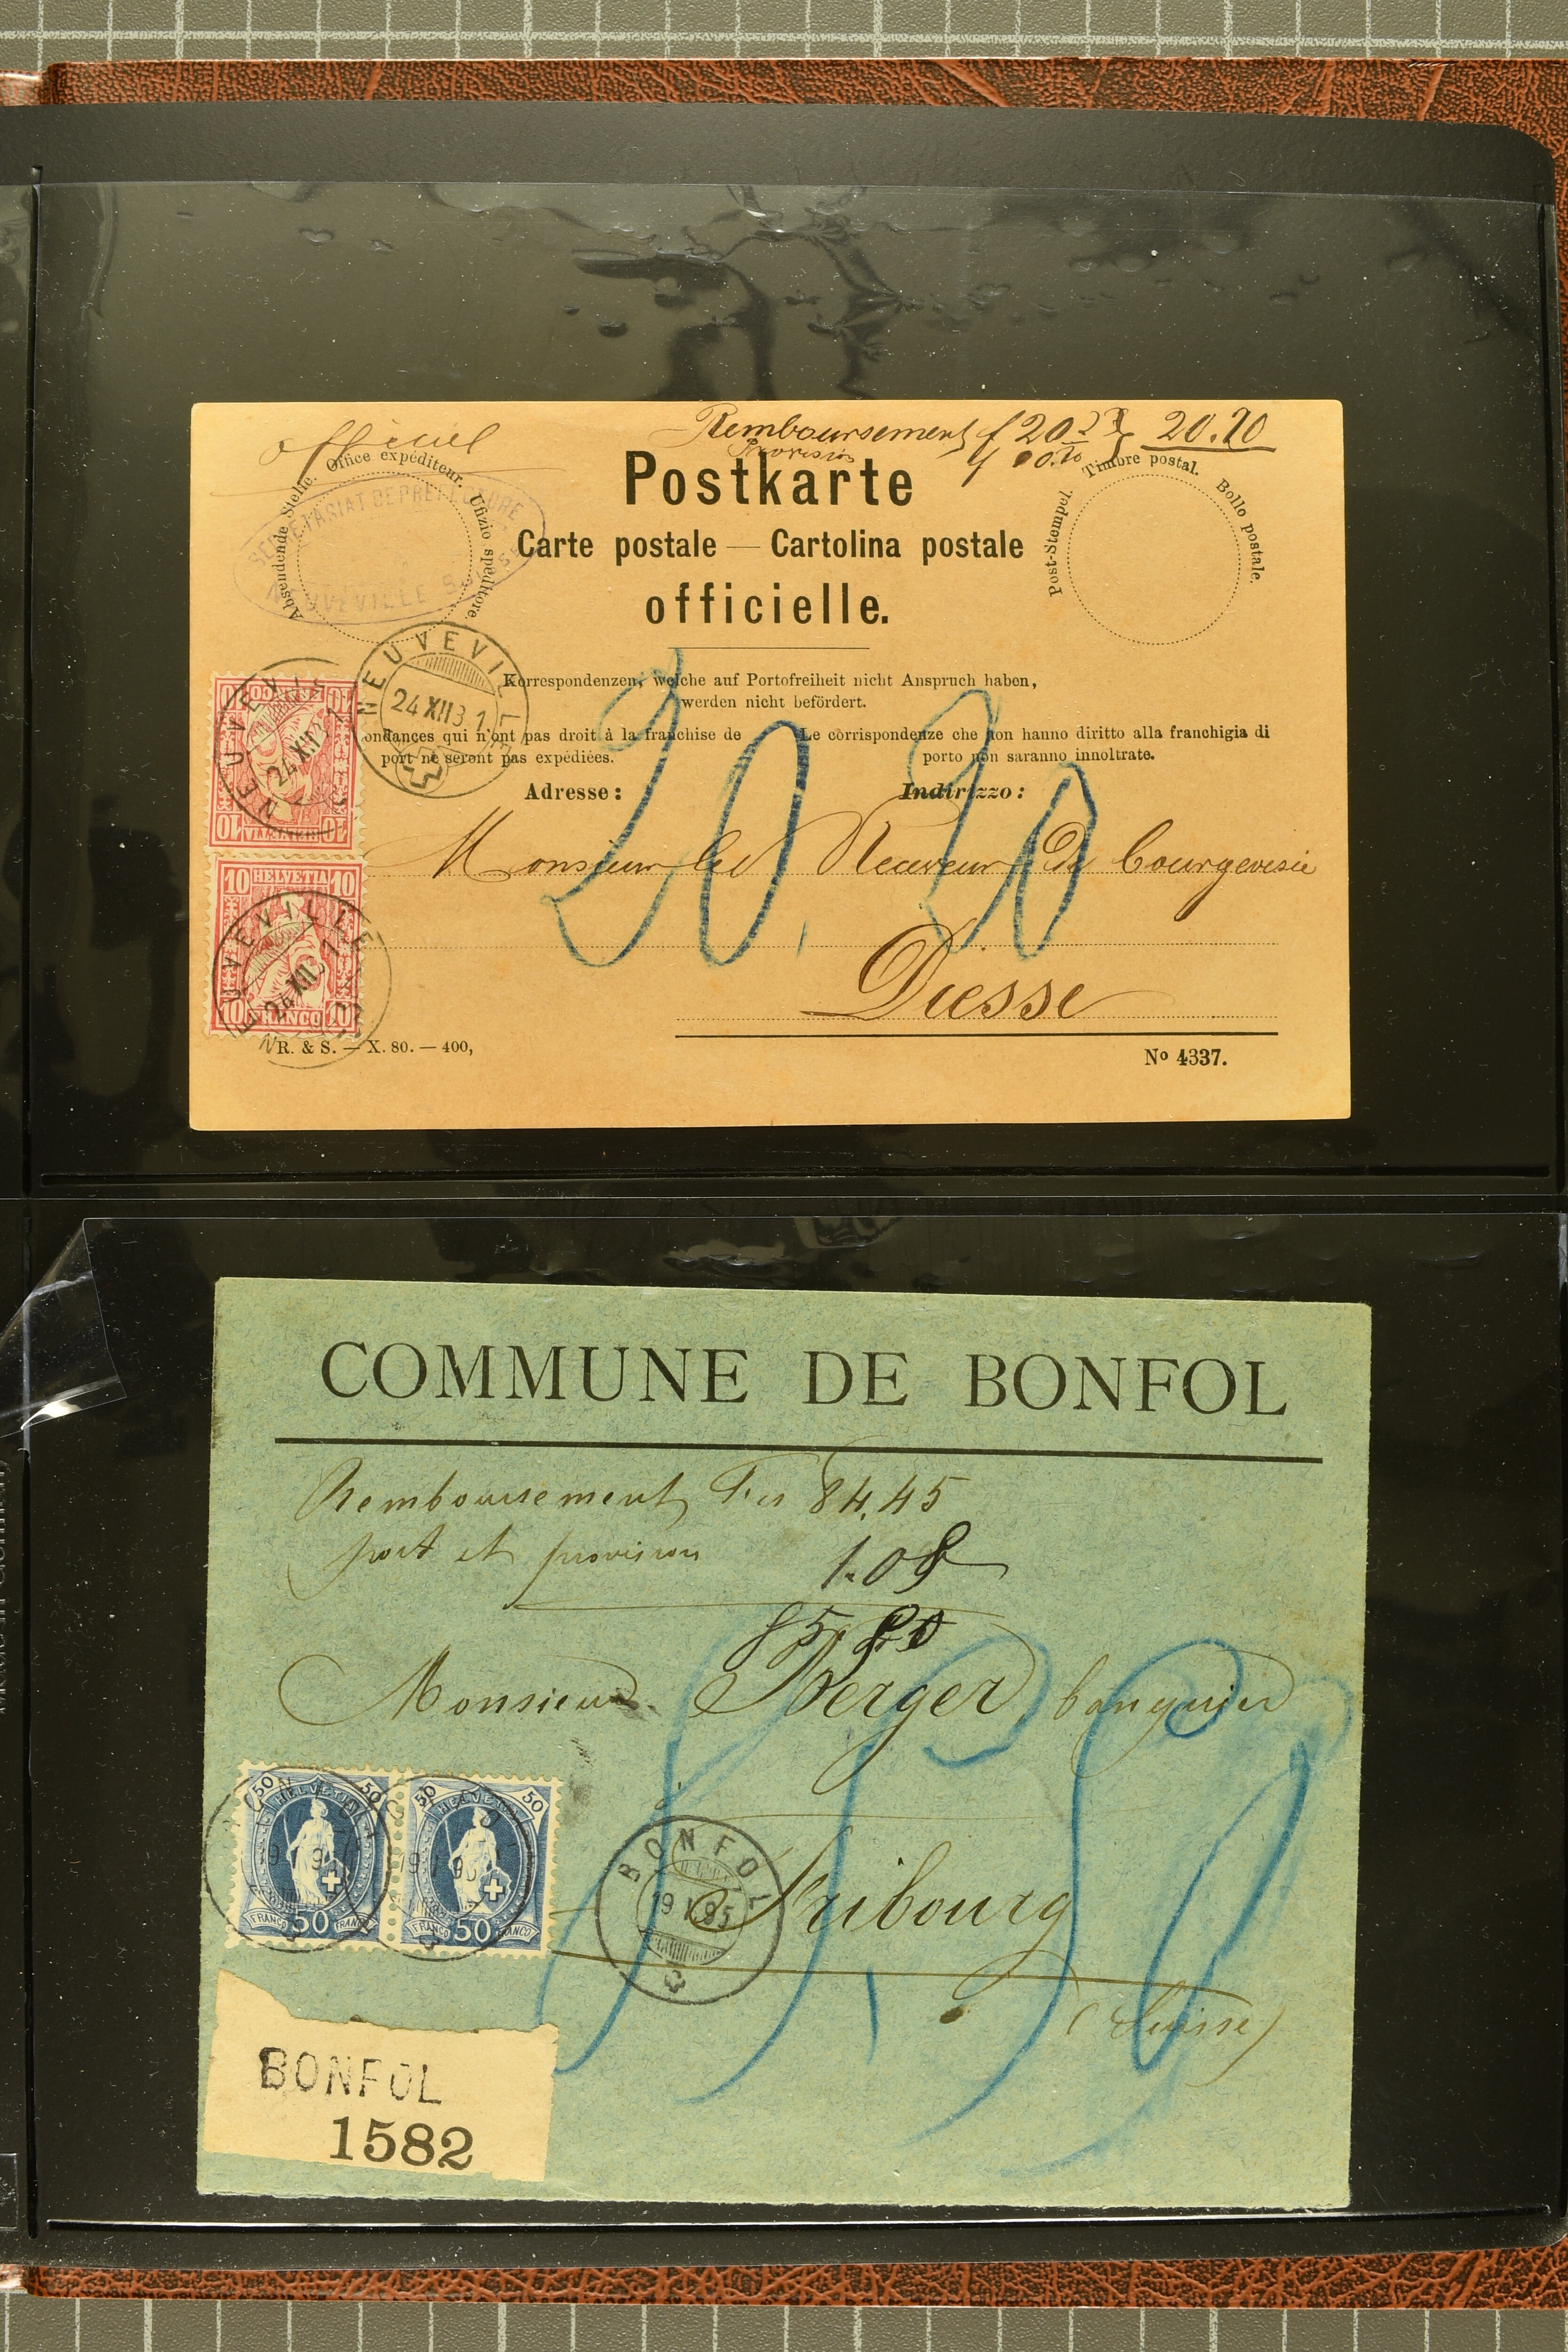 officiel
Remboursement f 20
Provision 20.20
Absendende Stelle. Office expéditeur. Ufizio speditore
SECRETARIAT DE PREFECTURE
NEUVEVILLE
Postkarte
Carte postale — Cartolina postale
officielle.
Post-Stempel. Timbre postal. Bollo postale.
NEUVEVILLE
24 XII 3 1
Korrespondenzen, welche auf Portofreiheit nicht Anspruch haben,
werden nicht befördert.
ondances qui n'ont pas droit à la franchise de
port ne seront pas expédiées.
Le corrispondenze che non hanno diritto alla franchigia di
porto non saranno innoltrate.
Adresse: Indirizzo:
20,20
Monsieur le Receveur de bourgeoisie
Diesse
10 HELVETIA 10
10 FRANCO 10
10 HELVETIA 10
10 FRANCO 10
NEUVEVILLE
24 XII
NEUVEVILLE
24 XII
R. & S. — X. 80. — 400,
No 4337.
COMMUNE DE BONFOL
Remboursement Frs 84.45
port et provision 1.05
85.50
Monsieur Berger, banquier
à
Fribourg
(Suisse)
85,50
50 HELVETIA 50
FRANCO 50 FRANCO
50 HELVETIA 50
FRANCO 50 FRANCO
BONFOL
19 95
BONFOL
1582